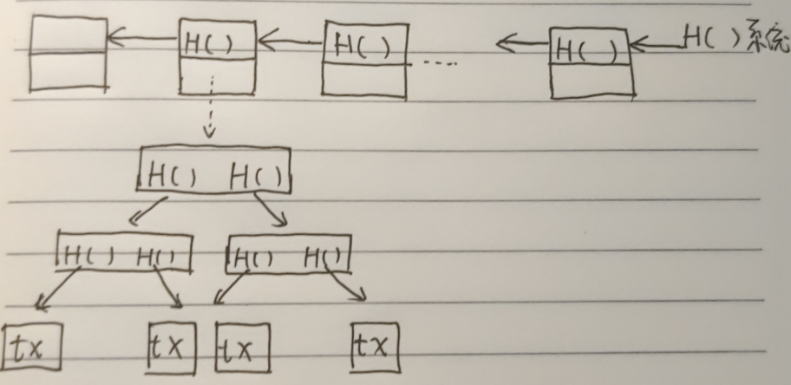 H() H() H() H()系统
H() H()
H() H() H() H()
tx tx tx tx